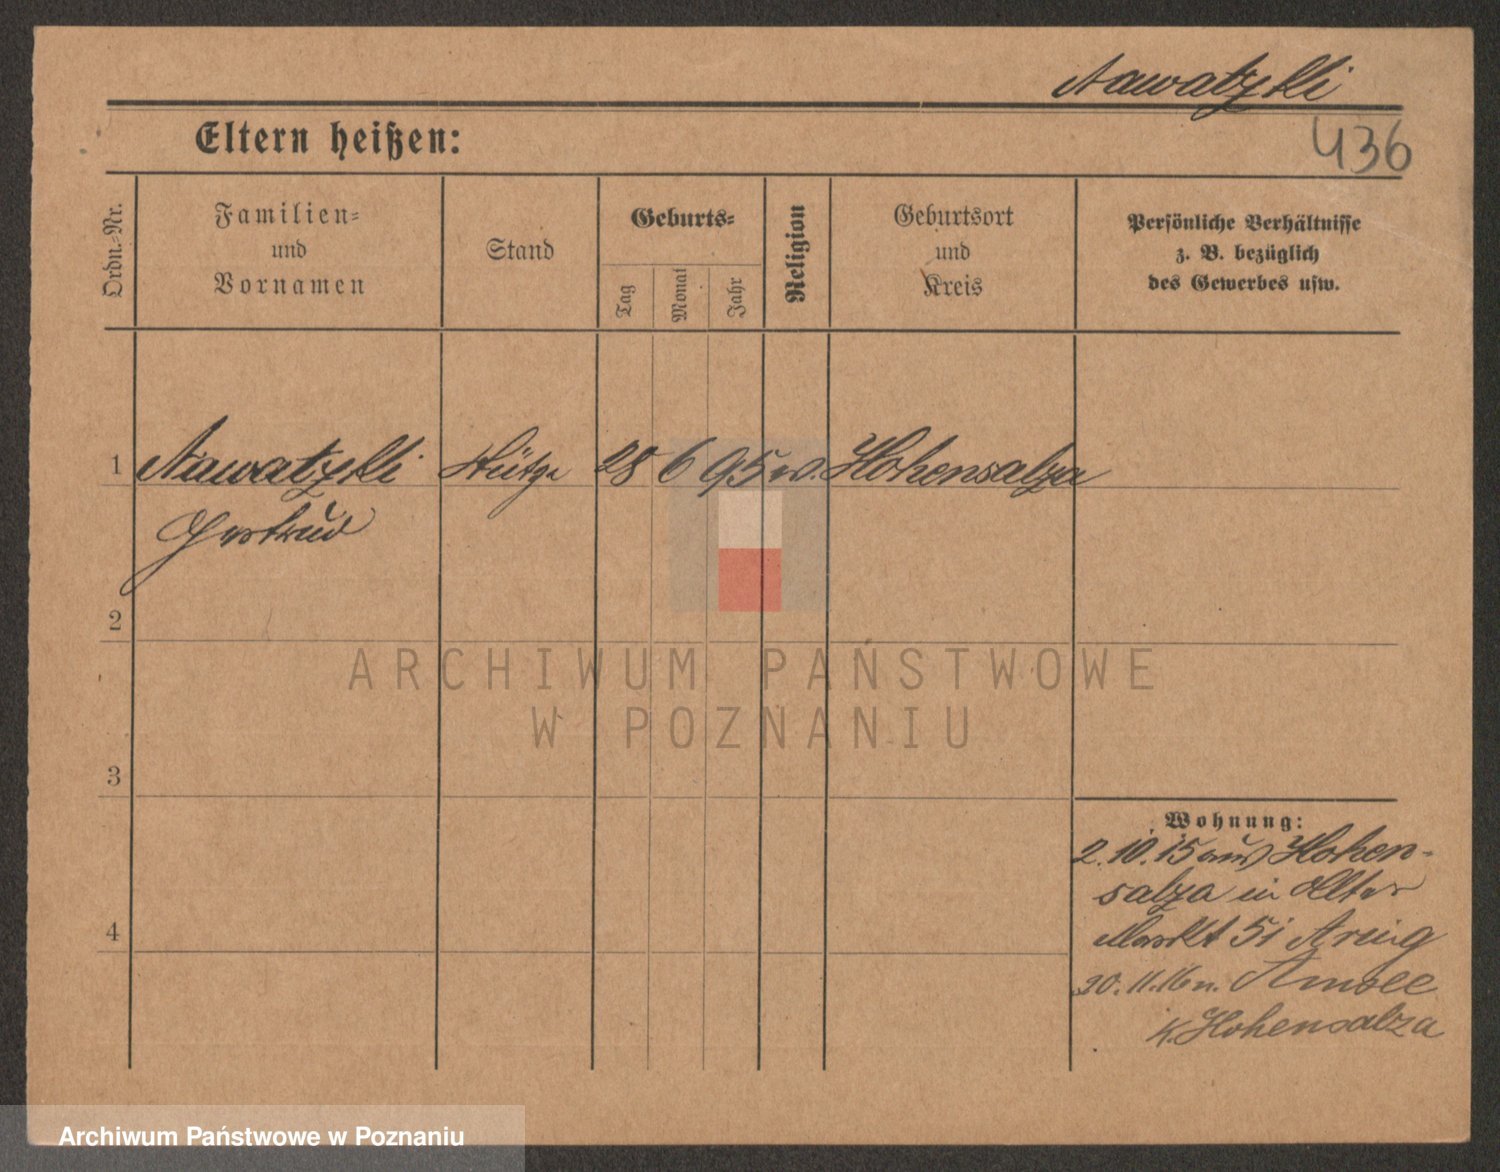 Nawatzki
436
Eltern heißen:
Ordn.-Nr.
Familien-
und
Vornamen
Stand
Geburts-
Tag
Monat
Jahr
Religion
Geburtsort
und
Kreis
Persönliche Verhältnisse
z. B. bezüglich
des Gewerbes usw.
1 Nawatzki Stütze 28 6 95 Hohensalza
Gertrud
2
ARCHIWUM PAŃSTWOWE
W POZNANIU
3
Wohnung:
2.10.15 aus Hohen-
salza in Alter
Markt 51
4
30.11.16 n. Amsee
K. Hohensalza
Archiwum Państwowe w Poznaniu